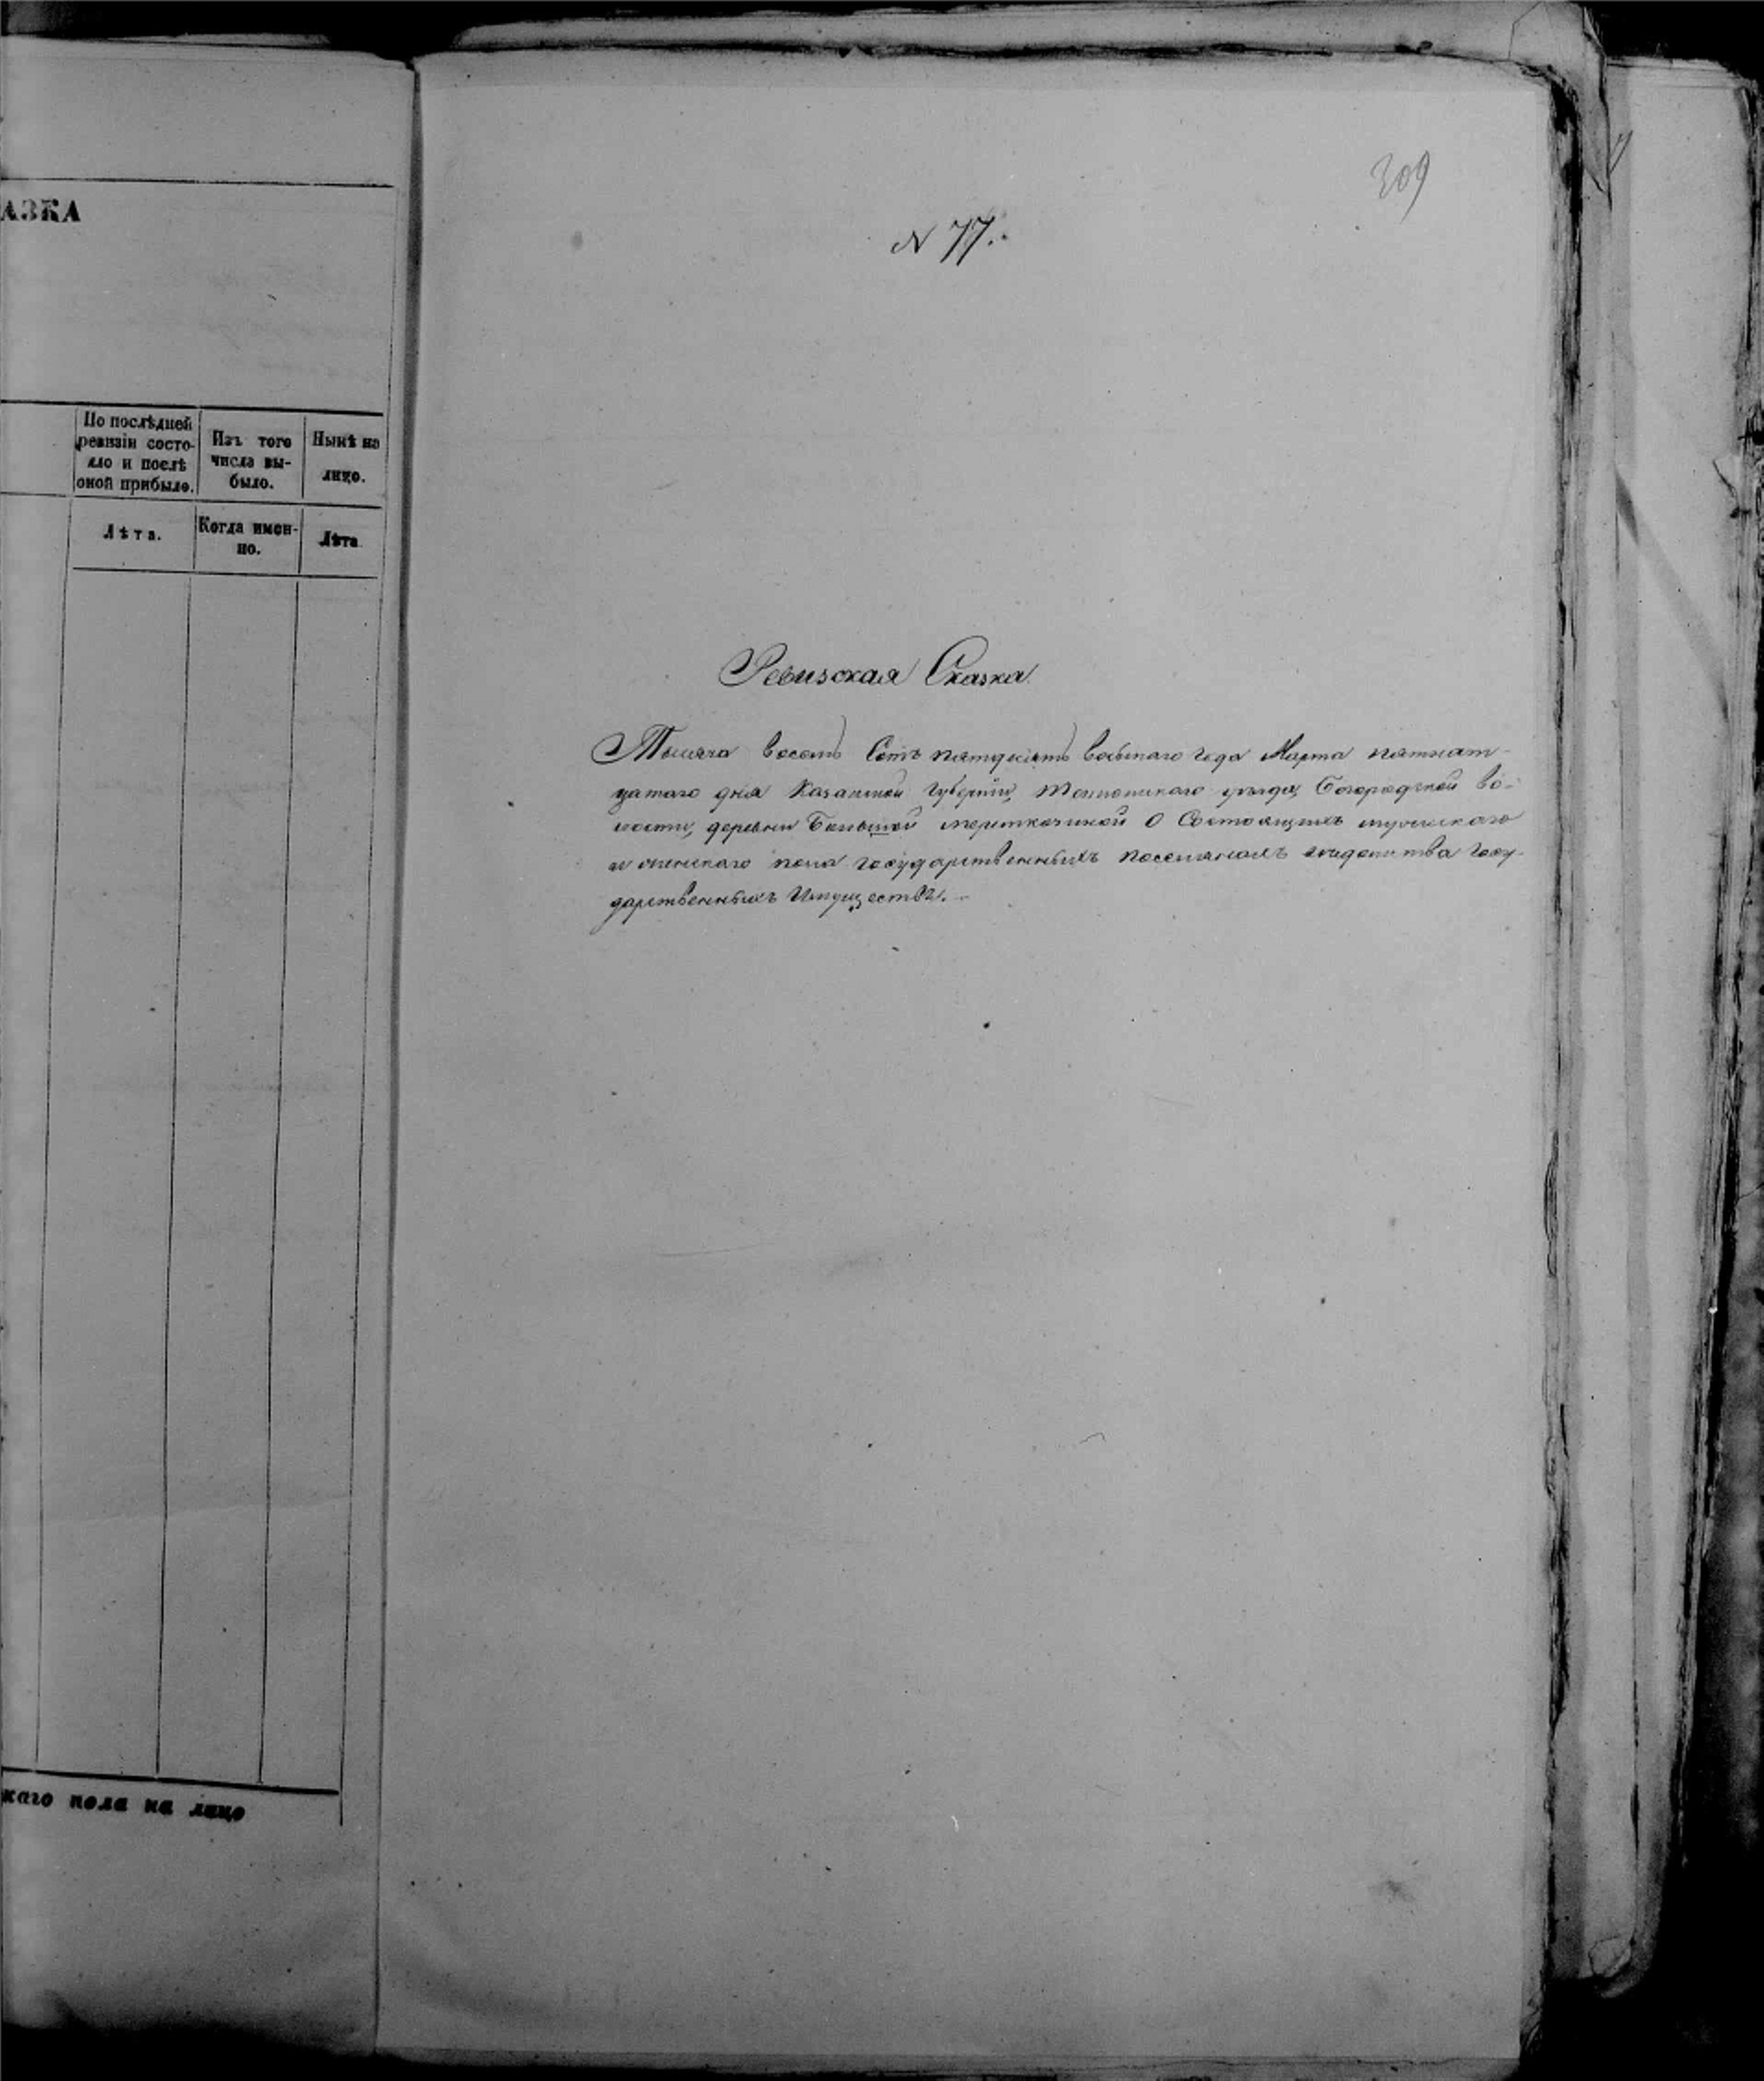 АЗКА
По послѣдней
ревизіи состо-
яло и послѣ
оной прибыло.
Изъ того
числа вы-
было.
Нынѣ на
лицо.
Лѣта.
Когда имен-
но.
Лѣта
каго пола на лицо
309
N 77.
Ревизская Сказка
Тысяча восемь Сотъ пятдесятъ восьмаго года Марта пятнат-
цатаго дня Казанской губерніи, уѣзда, Богородской во-
лости, деревни Большой О Состоящихъ мужескаго
и женскаго пола государственныхъ поселянахъ вѣдомства Госу-
дарственныхъ Имуществъ.